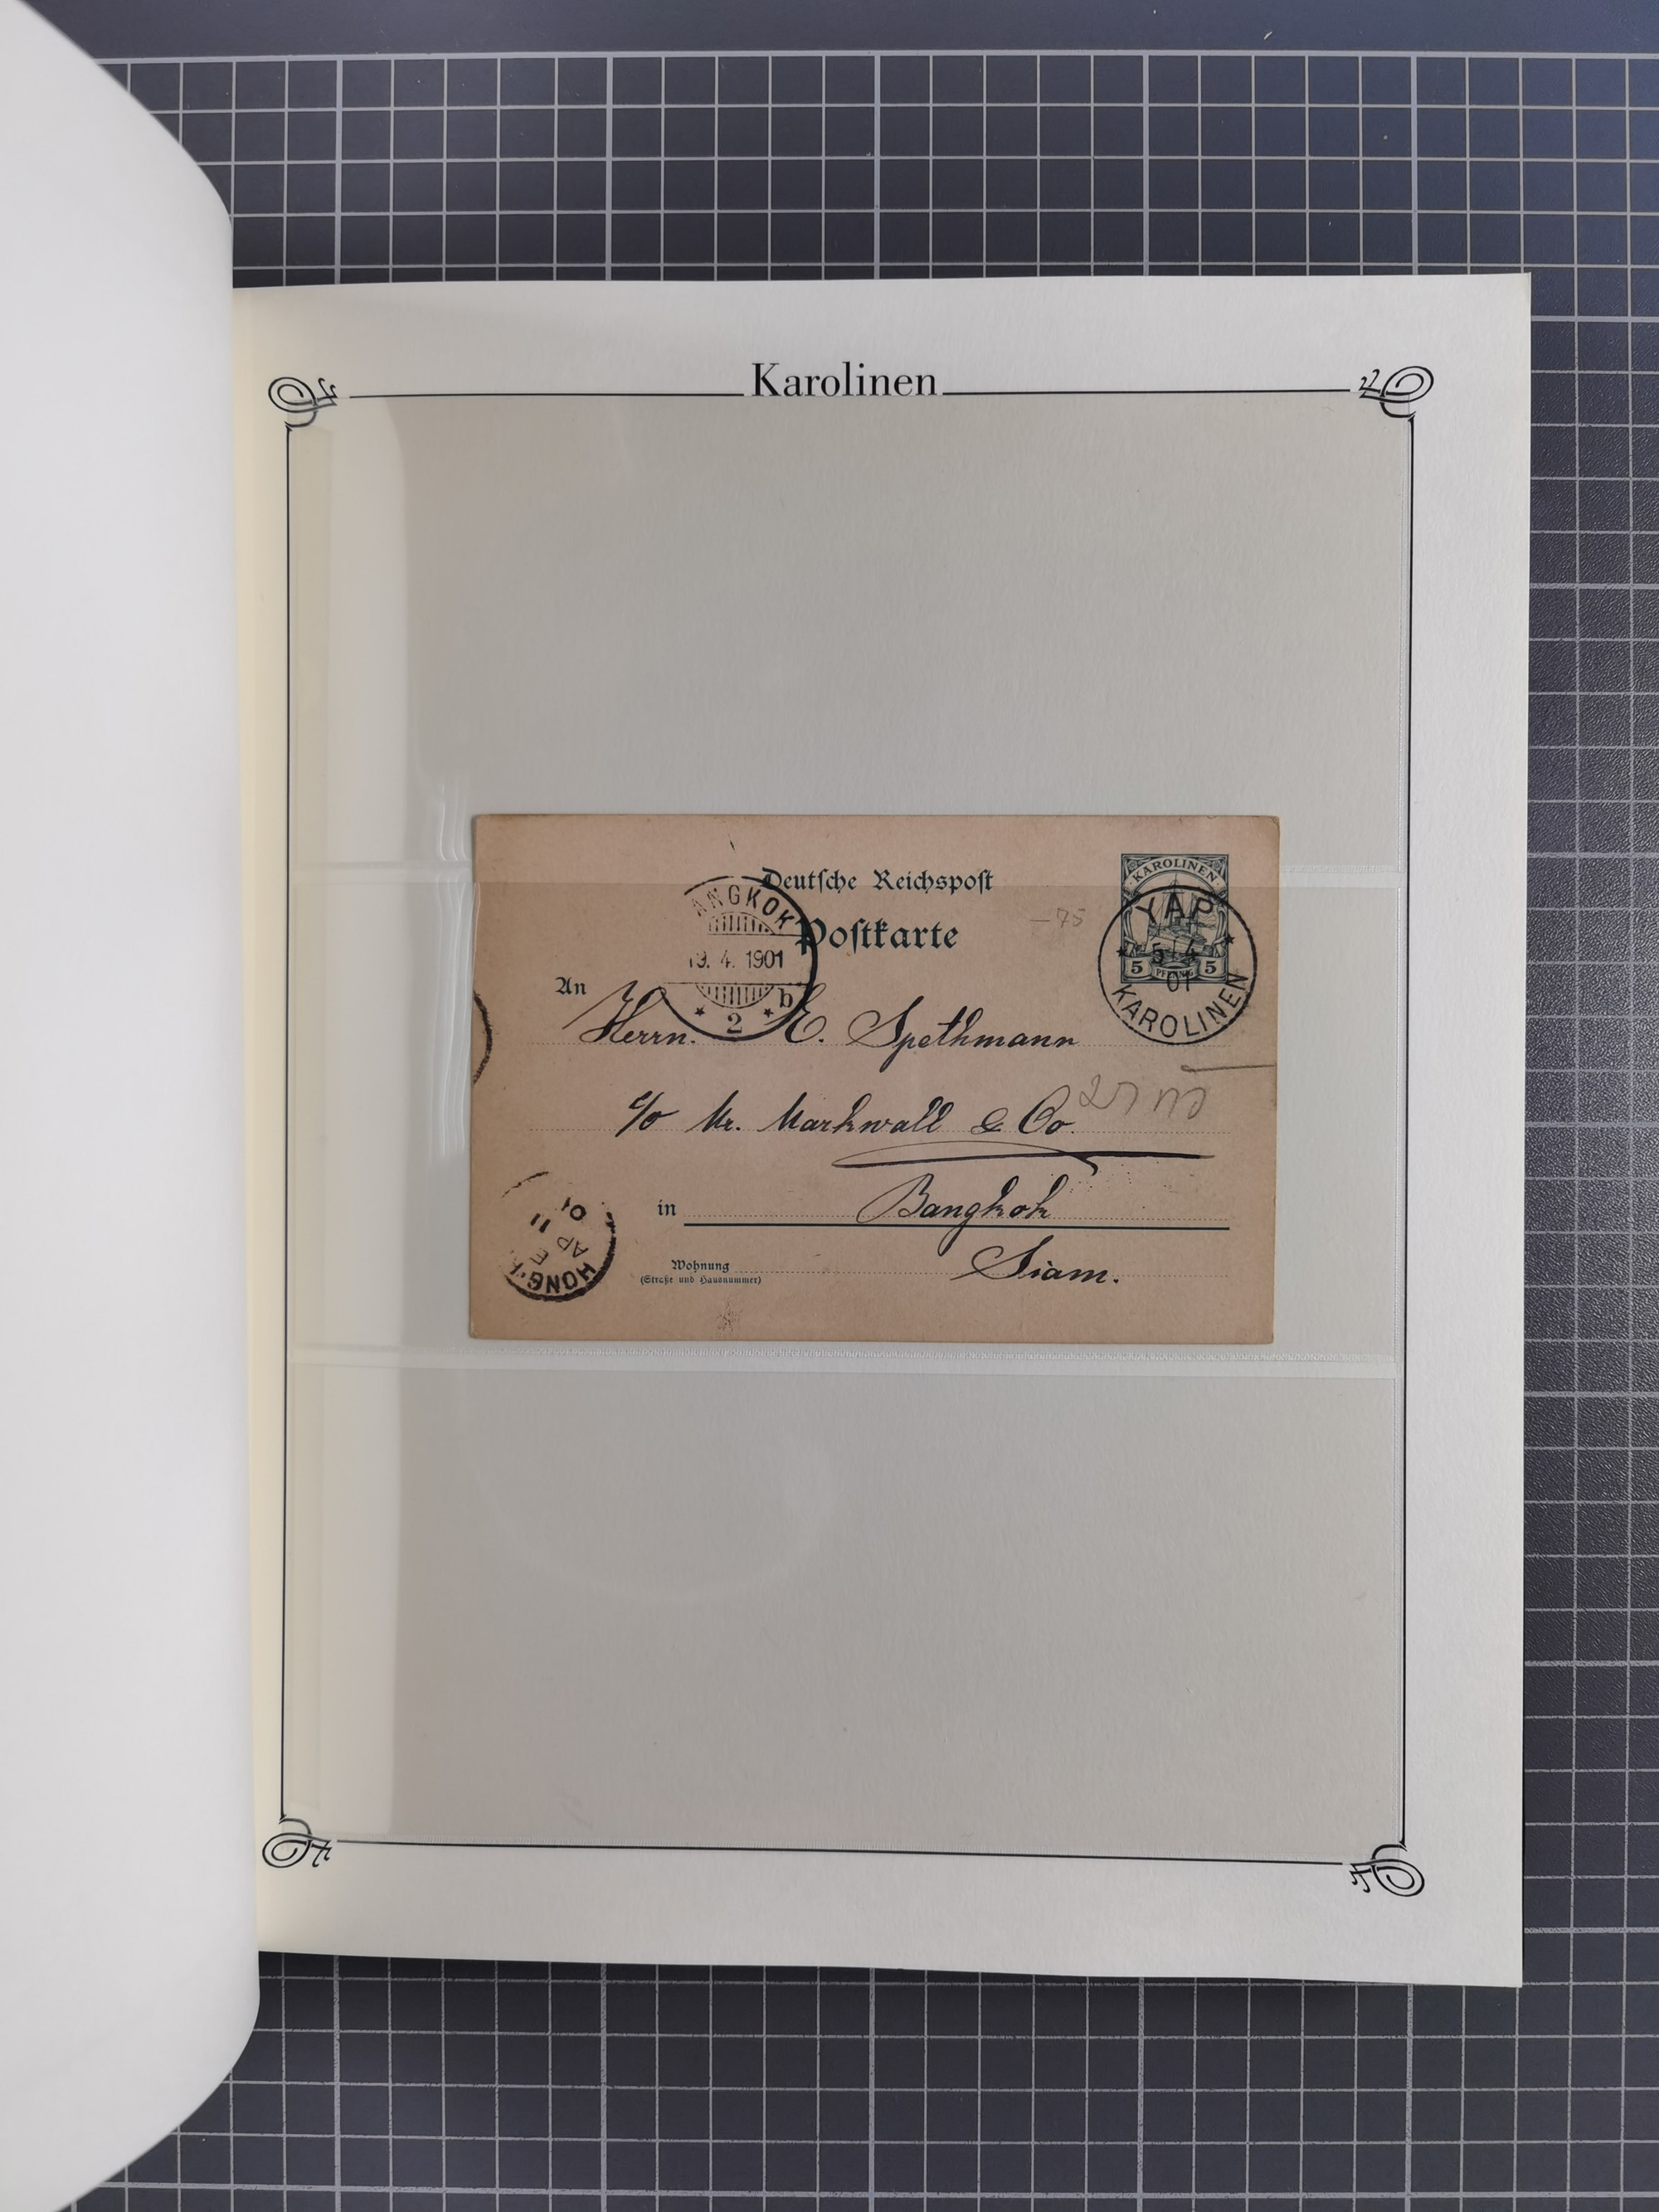 Karolinen
Deutsche Reichspost
Postkarte
KAROLINEN
5 PFENNIG 5
YAP
5/4
01
KAROLINEN
ANGKOK
19. 4. 1901
b
2
An
Herrn. E. Spethmann
c/o Mr. Markwall & Co.
in Bangkok
Wohnung
(Straße und Hausnummer)
Siam.
HONG
AP
11
01